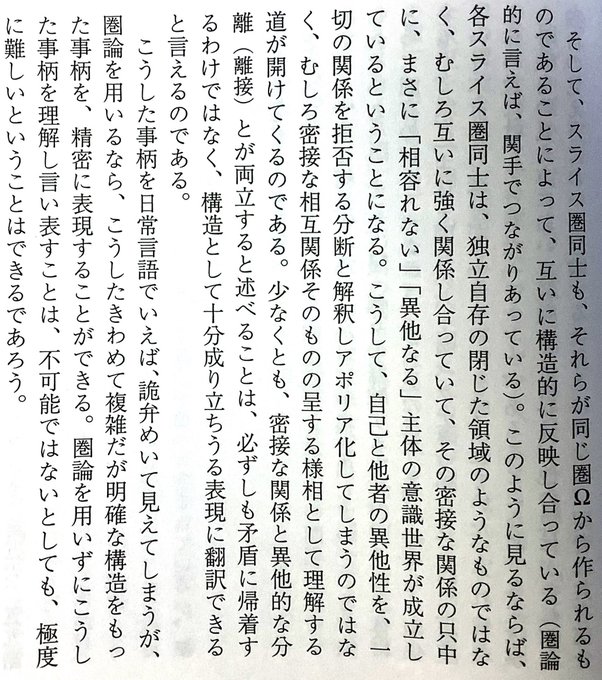 そして、スライス圏同士も、それらが同じ圏Ωから作られるも
のであることによって、互いに構造的に反映し合っている（圏論
的に言えば、関手でつながりあっている）。このように見るならば、
各スライス圏同士は、独立自存の閉じた領域のようなものではな
く、むしろ互いに強く関係し合っていて、その密接な関係の只中
に、まさに「相容れない」「異他なる」主体の意識世界が成立し
ているということになる。こうして、自己と他者の異他性を、一
切の関係を拒否する分断と解釈しアポリア化してしまうのではな
く、むしろ密接な相互関係そのものの呈する様相として理解する
道が開けてくるのである。少なくとも、密接な関係と異他的な分
離（離接）とが両立すると述べることは、必ずしも矛盾に帰着す
るわけではなく、構造として十分成り立ちうる表現に翻訳できる
と言えるのである。
こうした事柄を日常言語でいえば、詭弁めいて見えてしまうが、
圏論を用いるなら、こうしたきわめて複雑だが明確な構造をもっ
た事柄を、精密に表現することができる。圏論を用いずにこうし
た事柄を理解し言い表すことは、不可能ではないとしても、極度
に難しいということはできるであろう。